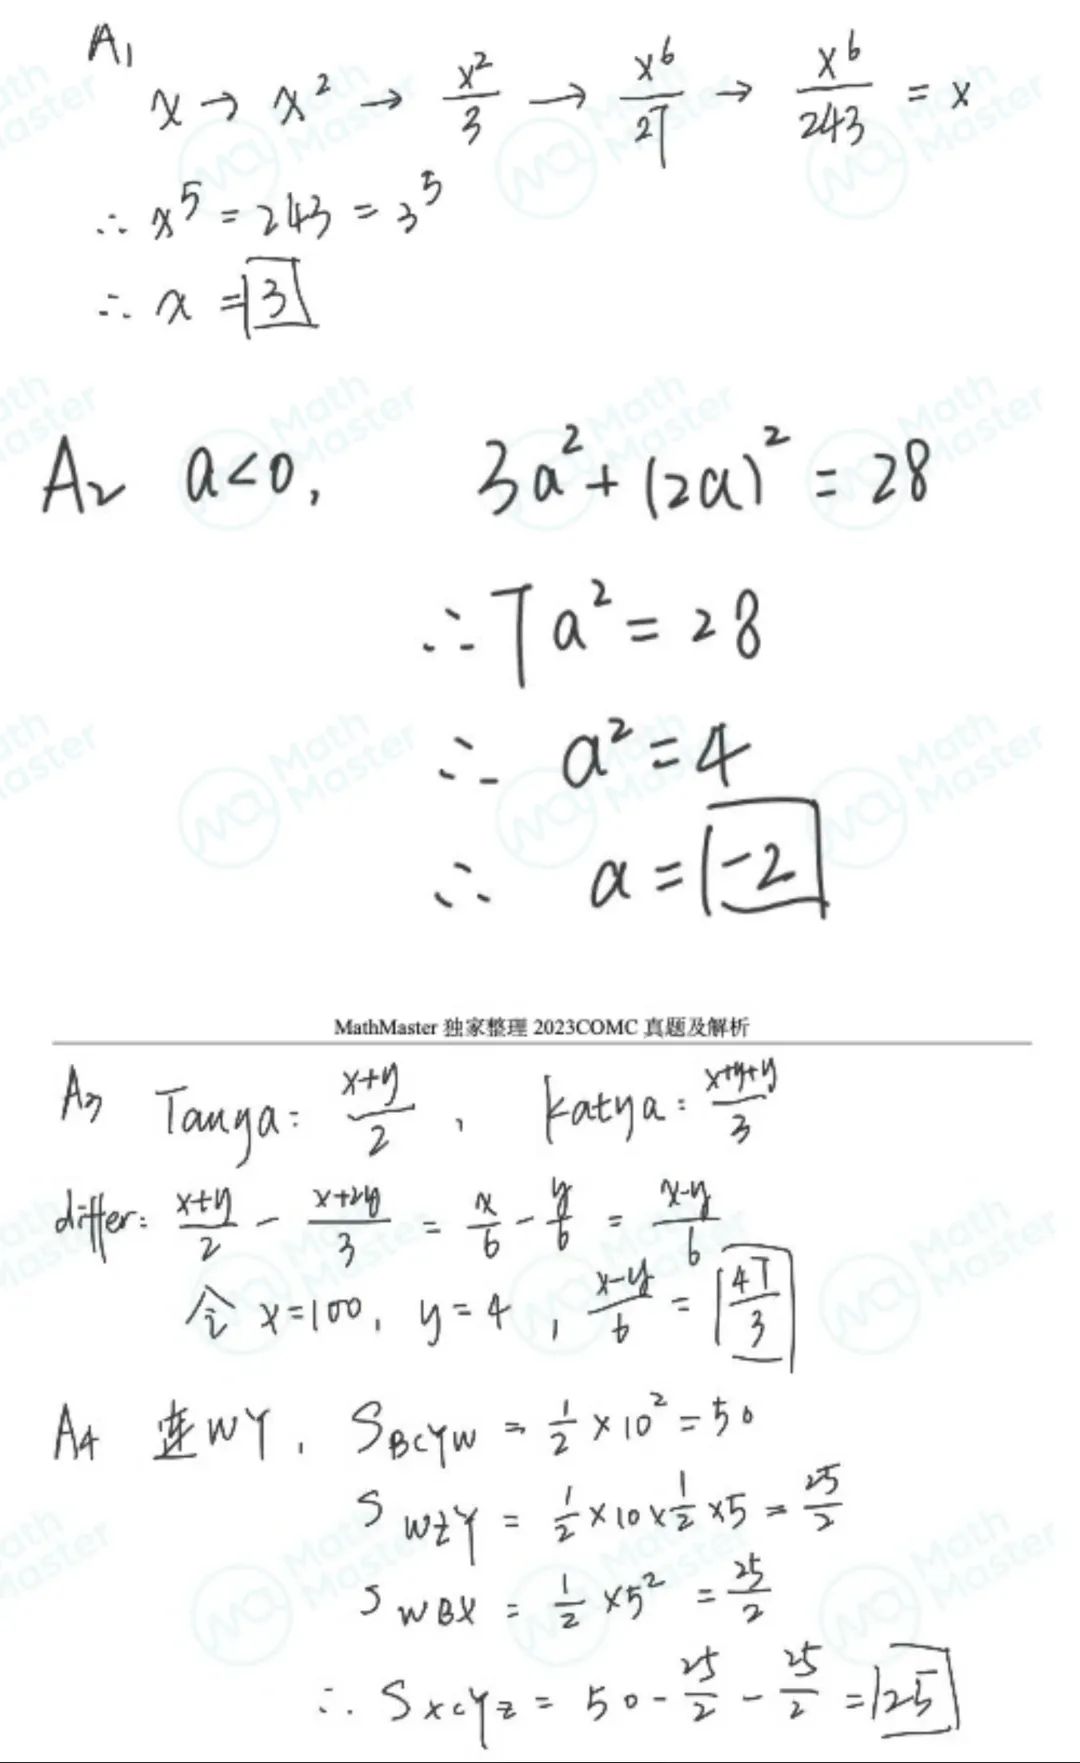 A₁
x → x² → x²/3 → x⁶/27 → x⁶/243 = x
∴ x⁵ = 243 = 3⁵
∴ x = 3
A₂ a<0, 3a² + (2a)² = 28
∴ 7a² = 28
∴ a² = 4
∴ a = -2
MathMaster 独家整理 2023COMC 真题及解析
A₃ Tanya: (x+y)/2 , Katya: (x+y+y)/3
differ: (x+y)/2 - (x+2y)/3 = x/6 - y/6 = (x-y)/6
令 x=100, y=4, (x-y)/6 = 47/3
A₄ 连WY, S BCYW = 1/2 × 10² = 50
S WZY = 1/2 × 10 × 1/2 × 5 = 25/2
S WBX = 1/2 × 5² = 25/2
∴ S XCYZ = 50 - 25/2 - 25/2 = 25
Math Master